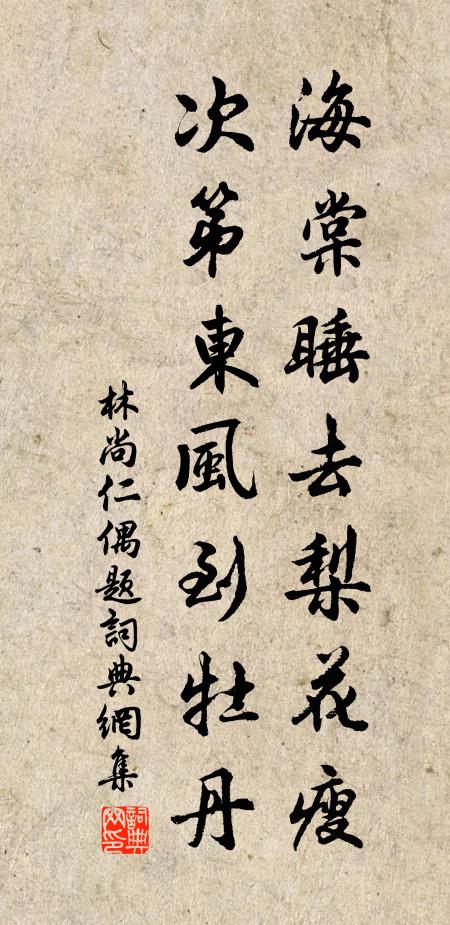 海棠睡去梨花瘦
次第東風到牡丹
林尚仁偶題詞典網集
詞典網印